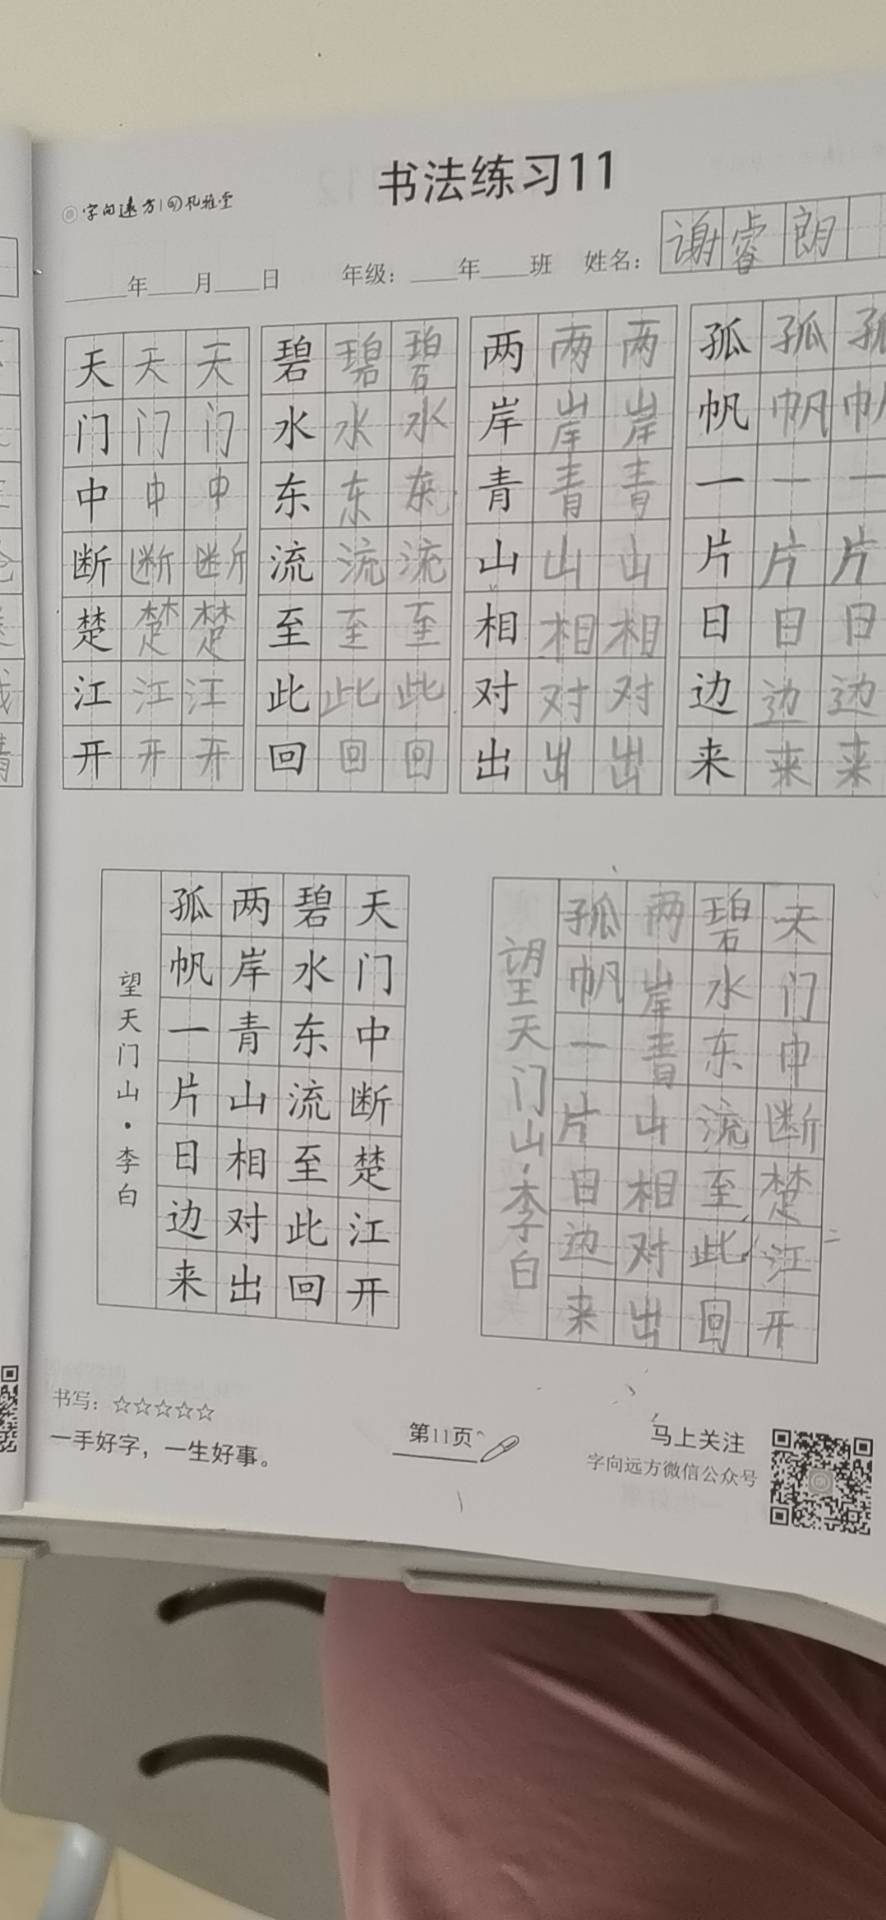 书法练习11
字向远方
年 月 日 年级： 年 班 姓名：谢睿朗
天天天 碧碧碧 两两两 孤孤孤
门门门 水水水 岸岸岸 帆帆帆
中中中 东东东 青青青 一一一
断断断 流流流 山山山 片片片
楚楚楚 至至至 相相相 日日日
江江江 此此此 对对对 边边边
开开开 回回回 出出出 来来来
天门中断楚江开
碧水东流至此回
两岸青山相对出
孤帆一片日边来
望天门山·李白
天门中断楚江开
碧水东流至此回
两岸青山相对出
孤帆一片日边来
望天门山·李白
书写：☆☆☆☆☆
一手好字，一生好事。
第11页
马上关注
字向远方微信公众号